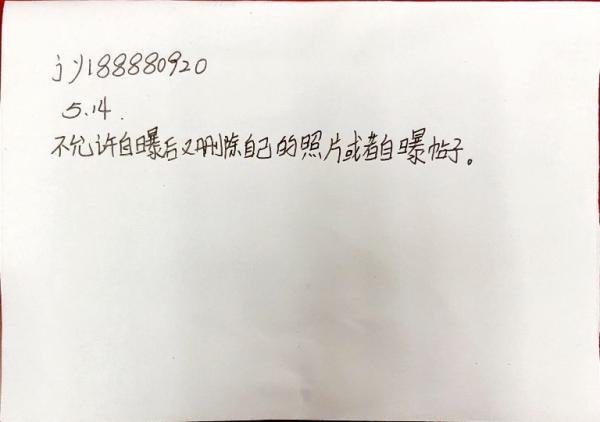 jy188880920
5.14.
不允许自曝后又删除自己的照片或者自曝帖子。